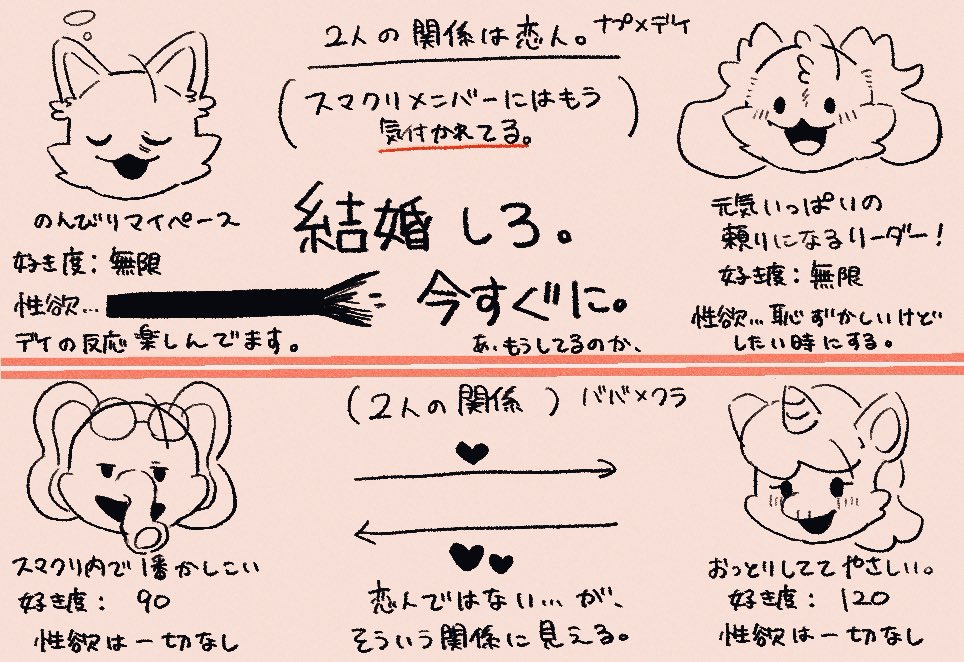 2人の関係は恋人。ナプ×デイ
(スマクリメンバーにはもう
気付かれてる。)
のんびりマイペース
好き度：無限
性欲…
デイの反応楽しんでます。
結婚しろ。
今すぐに。
あ、もうしてるのか、
元気いっぱいの
頼りになるリーダー！
好き度：無限
性欲…恥ずかしいけど
したい時にする。
(2人の関係)ババ×クラ
スマクリ内で1番かしこい
好き度： 90
性欲は一切なし
恋人ではない…が、
そういう関係に見える。
おっとりしててやさしい。
好き度： 120
性欲は一切なし